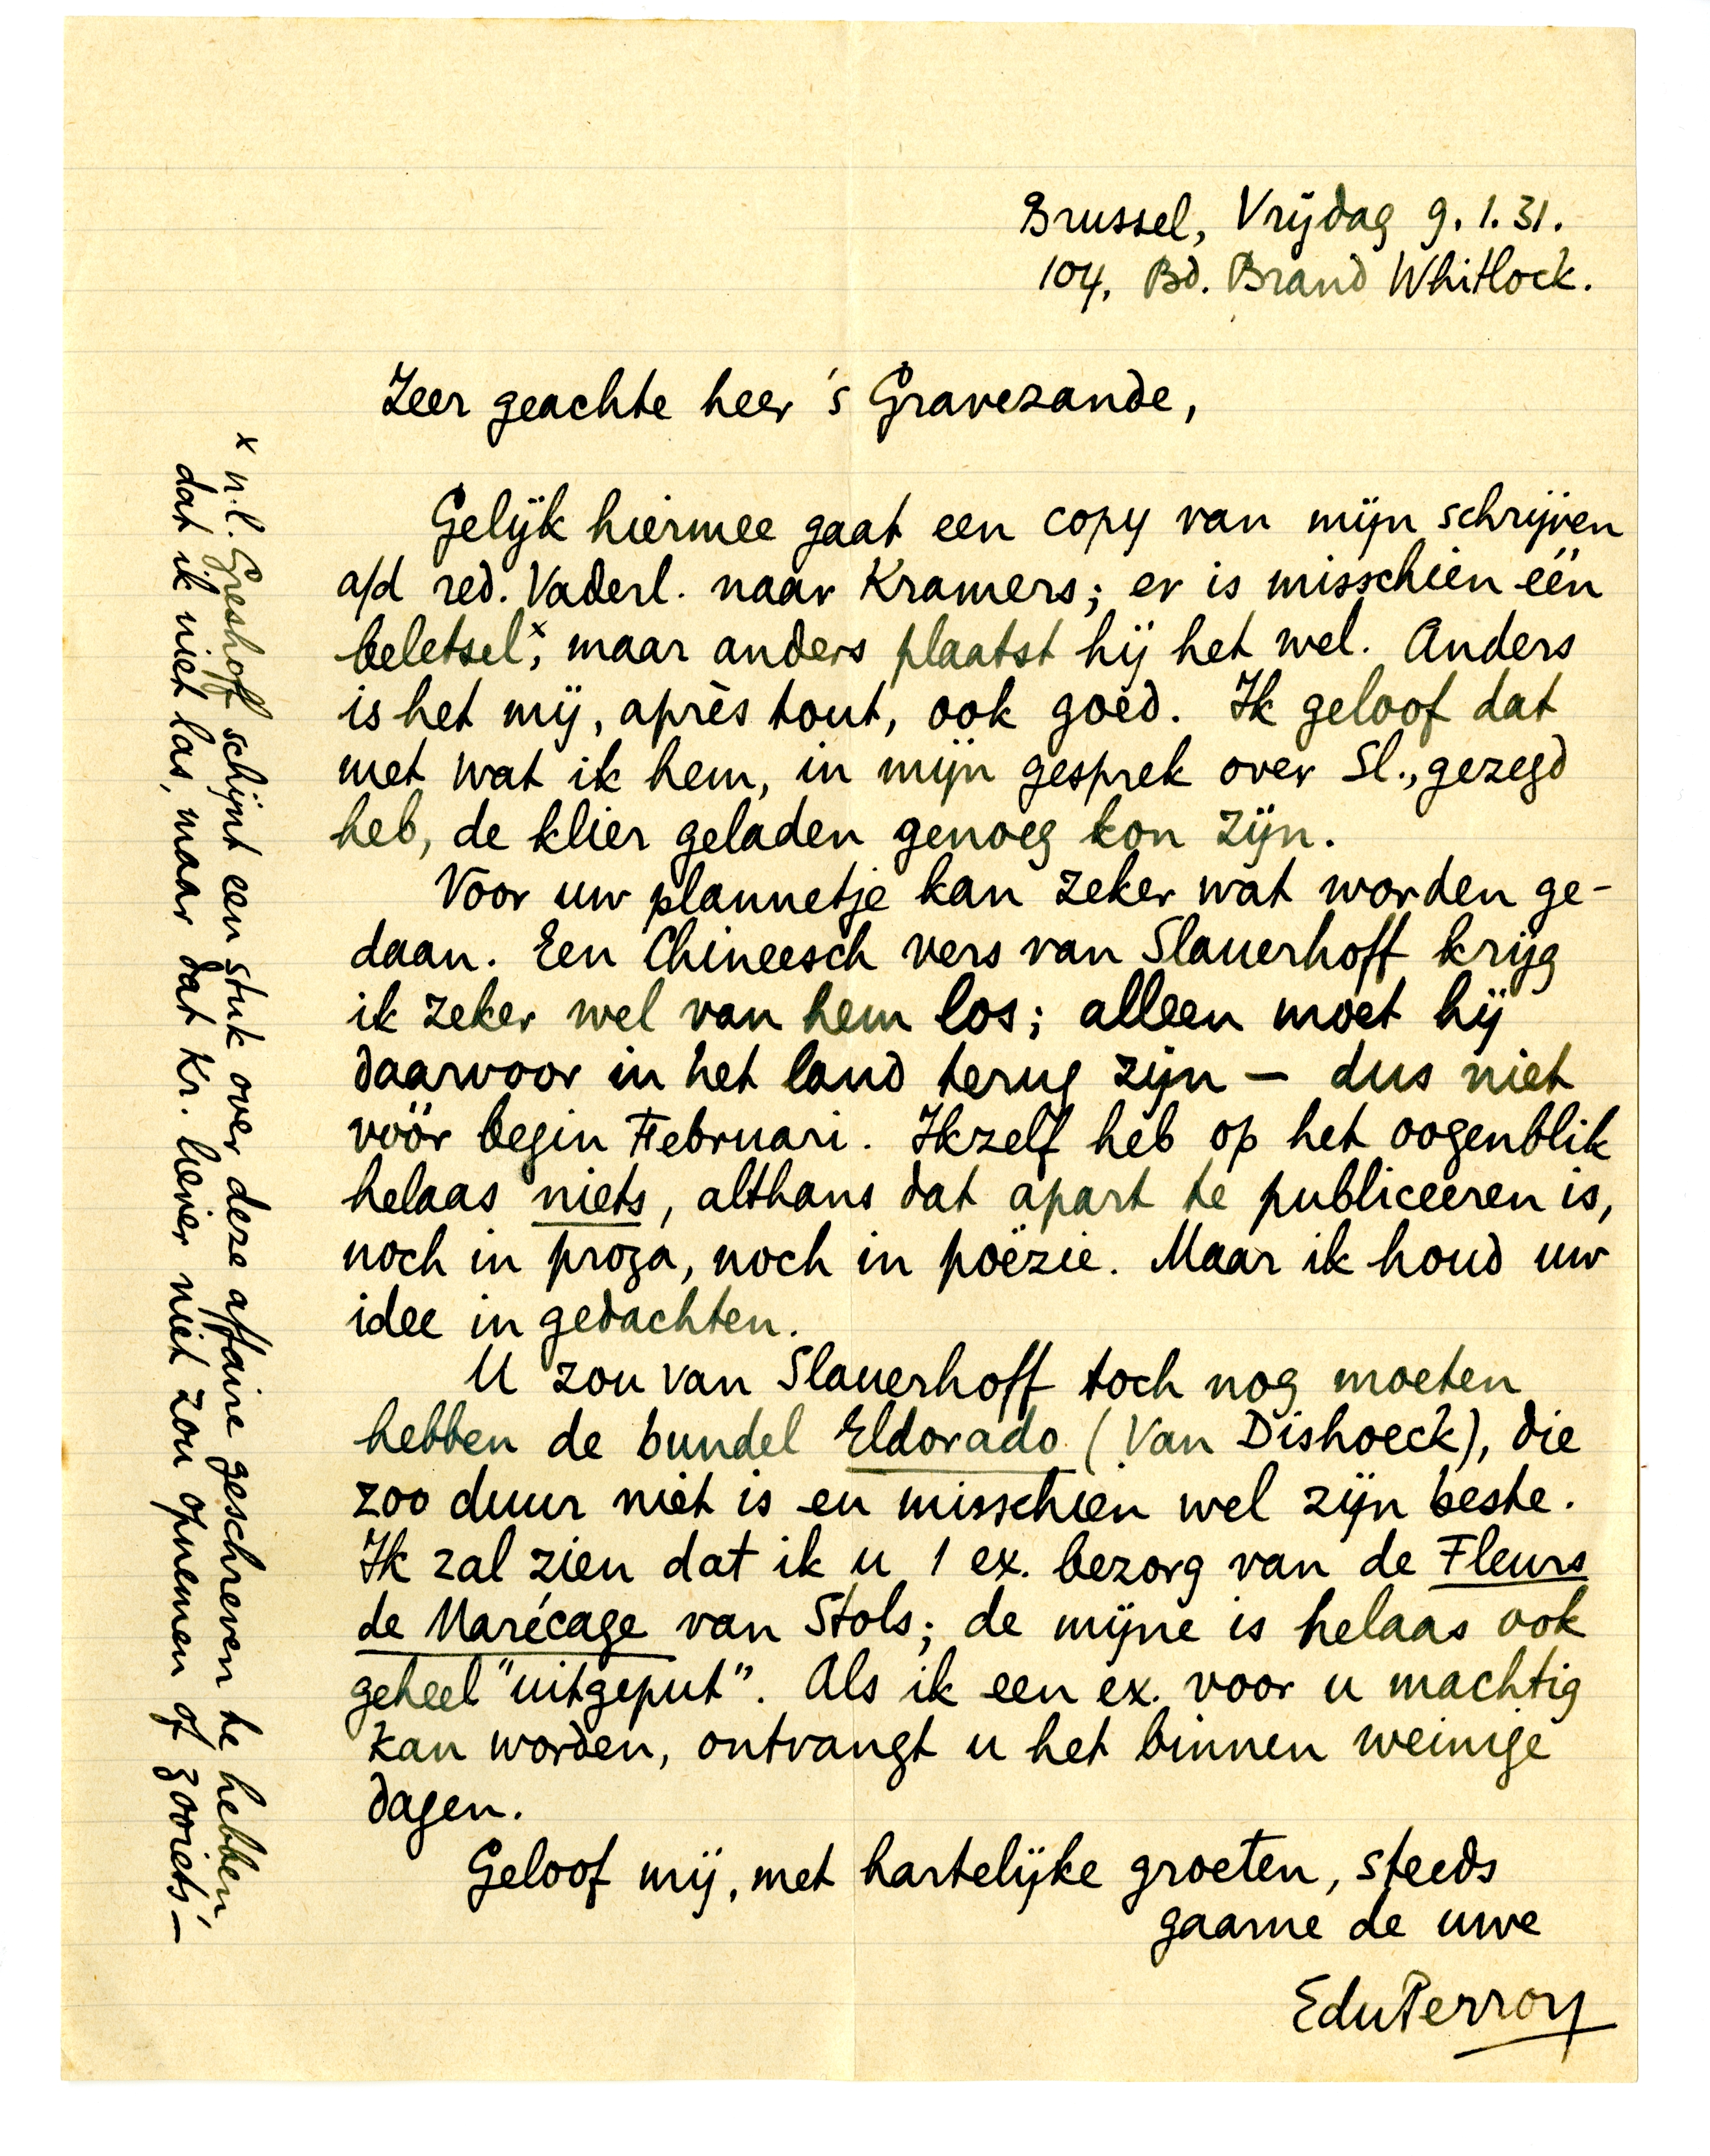 Brussel, Vrijdag 9.1.31.
104, Bd. Brand Whitlock.
Zeer geachte heer 's Gravezande,
Gelijk hiermee gaat een copy van mijn schrijven
a/d red. Vaderl. naar Kramers; er is misschien één
beletselˣ, maar anders plaatst hij het wel. Anders
is het mij, après tout, ook goed. Ik geloof dat
met wat ik hem, in mijn gesprek over Sl., gezegd
heb, de klier geladen genoeg kon zijn.
Voor uw plannetje kan zeker wat worden ge-
daan. Een Chineesch vers van Slauerhoff krijg
ik zeker wel van hem los; alleen moet hij
daarvoor in het land terug zijn — dus niet
vóór begin Februari. Ikzelf heb op het oogenblik
helaas niets, althans dat apart te publiceeren is,
noch in proza, noch in poëzie. Maar ik houd uw
idee in gedachten.
U zou van Slauerhoff toch nog moeten
hebben de bundel Eldorado (Van Dishoeck), die
zoo duur niet is en misschien wel zijn beste.
Ik zal zien dat ik u 1 ex. bezorg van de Fleurs
de Marécage van Stols; de mijne is helaas ook
geheel "uitgeput". Als ik een ex. voor u machtig
kan worden, ontvangt u het binnen weinige
dagen.
Geloof mij, met hartelijke groeten, steeds
gaarne de uwe
EduPerron
x n.l. Greshoff schijnt een stuk over deze affaire geschreven te hebben,
dat ik niet las, maar dat Kr. liever niet zou opnemen of zooiets —